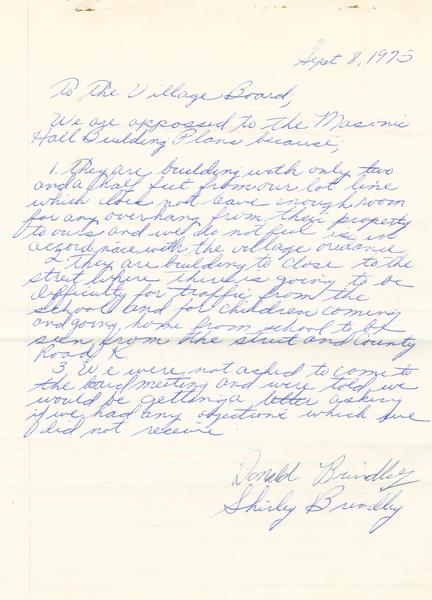 Sept 8, 1975
To The Village Board,
We are appossed to the Masonic
Hall Building Plans because;
1. They are building with only two
and a half feet from our lot line
which does not leave enough room
for any overhang from their property
to ours and we do not feel is in
accord nace with the village ordance
2 They are building to close to the
street where there is going to be
difficulty for traffic from the
school and for children coming
and going home from school to be
seen from the street and County
Road K.
3. We were not asked to come to
the board meeting and were told we
would be getting a letter asking
if we had any objections which we
did not receive
Donald Brindley
Shirley Brindley